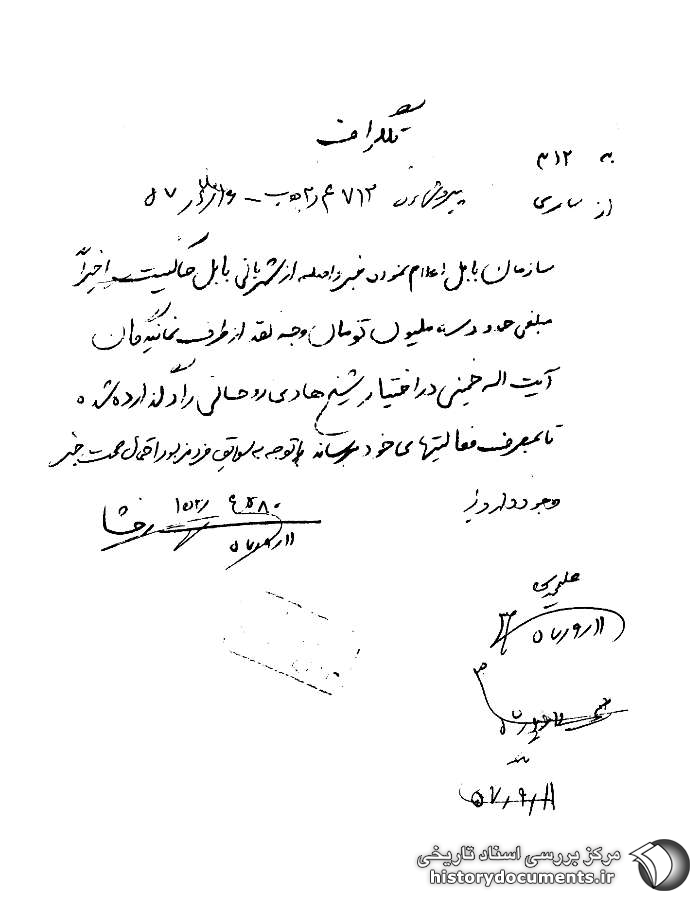 تلگراف
به ۳۱۲
از ساری پیرو شماره ۴۷۱۲
سازمان بابل اعلام نموده خبر واصله از شهربانی بابل حاکیست اخیراً
مبلغی حدود سه ملیون تومان وجه نقد از طرف نمایندگان
آیت اله خمینی در اختیار شیخ هادی روحانی گذارده شده
تا بمصرف فعالیتهای خود برساند با توجه به سوابق فرد مزبور احتمال صحت خبر
وجود دارد
رخشا
۵۷/۹/۱۱
۵۷/۹/۱۱
۵۷/۹/۱۱
مرکز بررسی اسناد تاریخی
historydocuments.ir